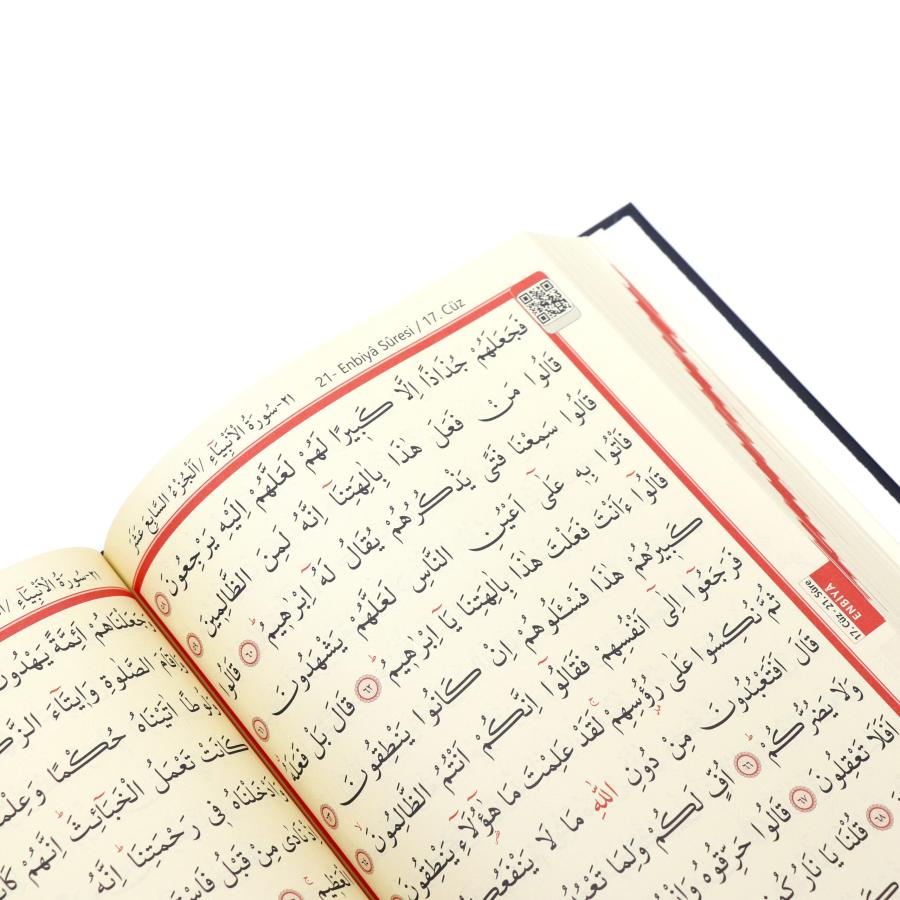 ٢١-سُورَةُ الْاَنْبِيَاءِ / اَلْجُزْءُ السَّابِعَ عَشَرَ
21- Enbiyâ Sûresi / 17. Cüz
فَجَعَلَهُمْ جُذَاذًا اِلَّا كَبِيرًا لَهُمْ لَعَلَّهُمْ اِلَيْهِ يَرْجِعُونَ ٥٨
قَالُوا مَنْ فَعَلَ هٰذَا بِاٰلِهَتِنَٓا اِنَّهُ لَمِنَ الظَّالِمِينَ ٥٩
قَالُوا سَمِعْنَا فَتًى يَذْكُرُهُمْ يُقَالُ لَهُٓ اِبْرٰهِيمُ ٦٠ قَالُوا
فَأْتُوا بِهِ عَلٰٓى اَعْيُنِ النَّاسِ لَعَلَّهُمْ يَشْهَدُونَ ٦١
قَالُٓوا ءَاَنْتَ فَعَلْتَ هٰذَا بِاٰلِهَتِنَا يَٓا اِبْرٰهِيمُ ٦٢ قَالَ بَلْ فَعَلَهُ
كَبِيرُهُمْ هٰذَا فَسْـَٔلُوهُمْ اِنْ كَانُوا يَنْطِقُونَ ٦٣
فَرَجَعُٓوا اِلٰٓى اَنْفُسِهِمْ فَقَالُٓوا اِنَّكُمْ اَنْتُمُ الظَّالِمُونَ ٦٤
ثُمَّ نُكِسُوا عَلٰى رُؤُسِهِمْ لَقَدْ عَلِمْتَ مَا هٰٓؤُلَٓاءِ يَنْطِقُونَ
قَالَ اَفَتَعْبُدُونَ مِنْ دُونِ اللّٰهِ مَا لَا يَنْفَعُكُمْ
وَلَا يَضُرُّكُمْ ٦٦ اُفٍّ لَكُمْ وَلِمَا تَعْبُدُونَ
اَفَلَا تَعْقِلُونَ ٦٧ قَالُوا حَرِّقُوهُ
٦٨ قُلْنَا يَا نَارُ كُونِي
17. Cüz - 21. Sûre
ENBİYÂ
٢١-سُورَةُ الْاَنْبِيَاءِ /
وَجَعَلْنَاهُمْ اَئِمَّةً يَهْدُونَ
وَاِقَامَ الصَّلٰوةِ وَاِيتَٓاءَ
وَلُوطًا اٰتَيْنَاهُ حُكْمًا وَعِلْمًا
كَانَتْ تَعْمَلُ الْخَبَٓائِثَ اِنَّهُمْ
وَاَدْخَلْنَاهُ فِي رَحْمَتِنَا اِنَّهُ
اِذْ نَادٰى مِنْ قَبْلُ
الْعَظِيمِ